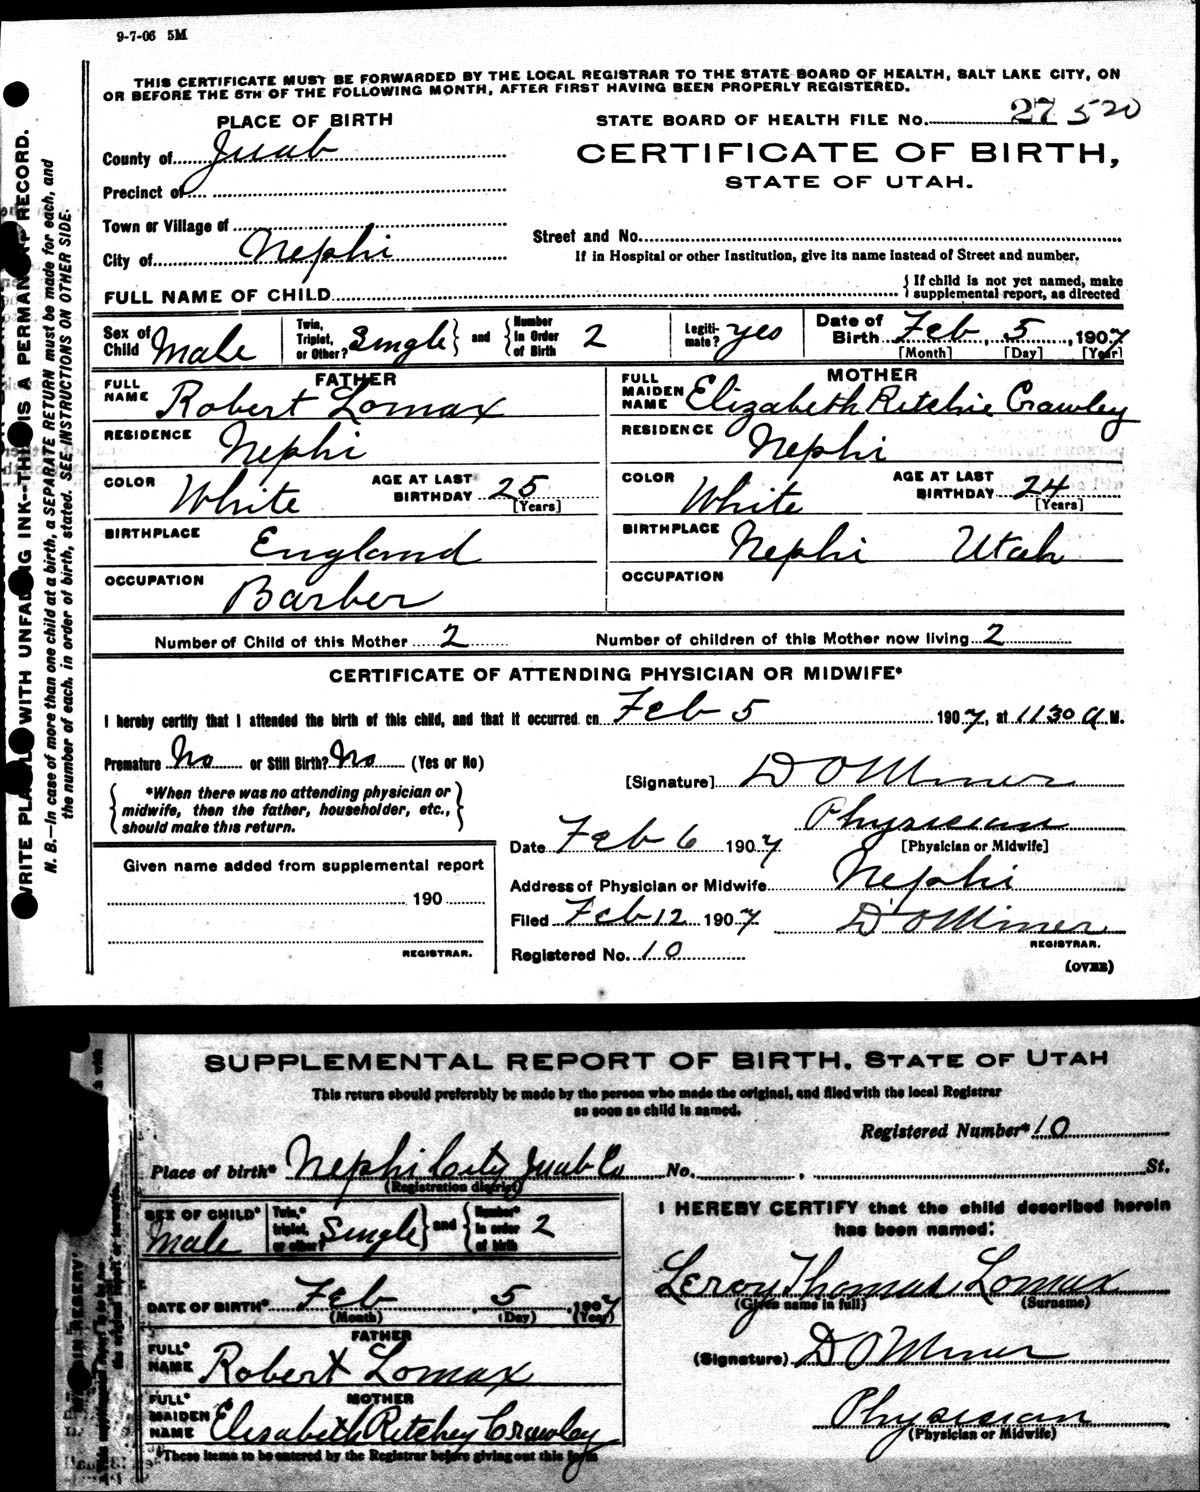 9-7-06 5M
THIS CERTIFICATE MUST BE FORWARDED BY THE LOCAL REGISTRAR TO THE STATE BOARD OF HEALTH, SALT LAKE CITY, ON
OR BEFORE THE 5TH OF THE FOLLOWING MONTH, AFTER FIRST HAVING BEEN PROPERLY REGISTERED.
PLACE OF BIRTH
STATE BOARD OF HEALTH FILE No. 27 520
County of Juab
CERTIFICATE OF BIRTH,
STATE OF UTAH.
Precinct of
Town or Village of
City of Nephi
Street and No.
If in Hospital or other Institution, give its name instead of Street and number.
FULL NAME OF CHILD
{ If child is not yet named, make
supplemental report, as directed
Sex of Child Male
Twin, Triplet, or Other? Single } and { Number in Order of Birth 2
Legitimate? yes
Date of Birth Feb 5, 1907
[Month] [Day] [Year]
FATHER
FULL NAME Robert Lomax
RESIDENCE Nephi
COLOR White AGE AT LAST BIRTHDAY 25 [Years]
BIRTHPLACE England
OCCUPATION Barber
MOTHER
FULL MAIDEN NAME Elizabeth Ritchie Crawley
RESIDENCE Nephi
COLOR White AGE AT LAST BIRTHDAY 24 [Years]
BIRTHPLACE Nephi Utah
OCCUPATION
Number of Child of this Mother 2 Number of children of this Mother now living 2
CERTIFICATE OF ATTENDING PHYSICIAN OR MIDWIFE*
I hereby certify that I attended the birth of this child, and that it occurred on Feb 5 1907, at 1130 a M.
Premature No or Still Birth? No (Yes or No)
[Signature] D O Miner
{ *When there was no attending physician or
midwife, then the father, householder, etc.,
should make this return. }
Physician
[Physician or Midwife]
Date Feb 6 1907
Address of Physician or Midwife Nephi
Filed Feb 12 1907 D O Miner
REGISTRAR.
Registered No. 10
(OVER)
Given name added from supplemental report
190
REGISTRAR.
N. B.—In case of more than one child at a birth, a SEPARATE RETURN must be made for each, and
the number of each, in order of birth, stated. SEE INSTRUCTIONS ON OTHER SIDE.
SUPPLEMENTAL REPORT OF BIRTH. STATE OF UTAH
This return should preferably be made by the person who made the original, and filed with the local Registrar
as soon as child is named.
Registered Number* 10
Place of birth* Nephi City Juab Co No. , St.
(Registration district)
SEX OF CHILD* Male
Twin,* triplet, or other? Single } and { Number* in order of birth 2
DATE OF BIRTH* Feb , 5 , 1907
(Month) (Day) (Year)
FATHER
FULL* NAME Robert Lomax
MOTHER
FULL* MAIDEN NAME Elisabeth Ritchey Crawley
*These items to be entered by the Registrar before giving out this form
I HEREBY CERTIFY that the child described herein
has been named:
Leroy Thomas Lomax
(Given name in full) (Surname)
(Signature) D O Miner
Physician
(Physician or Midwife)